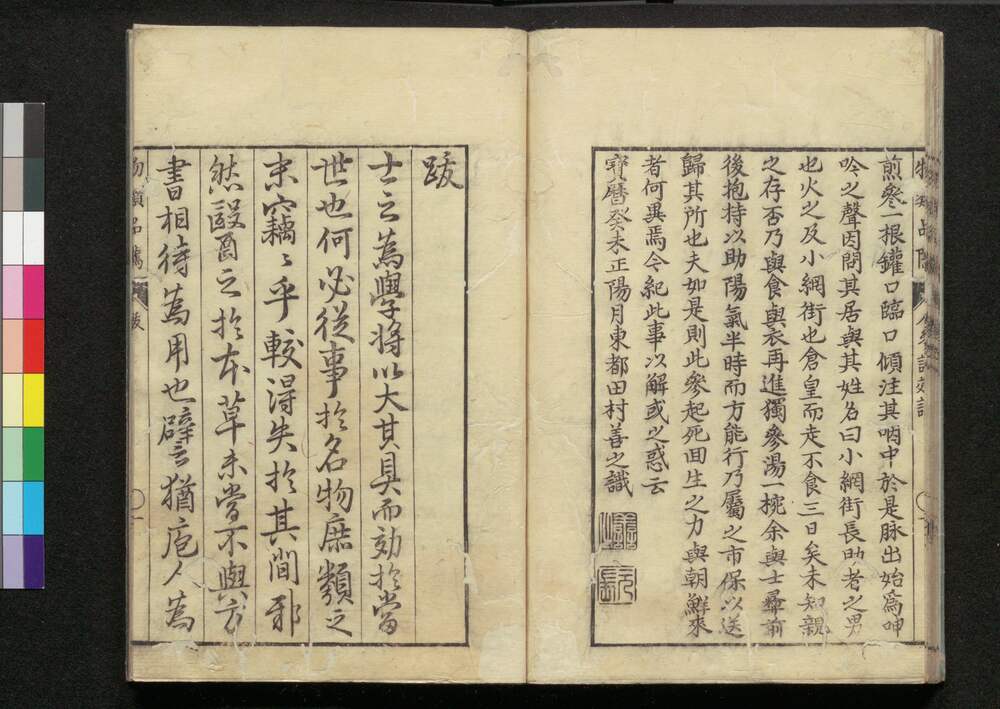 煎參一根鑵口臨口傾注其吶中於是脉出始爲呻
吟之聲因問其居與其姓名曰小網街長助者之男
也火之及小網街也倉皇而走不食三日矣未知親
之存否乃與食與衣再進獨參湯一椀余與士尋前
後抱持以助陽氣半時而方能行乃屬之市保以送
歸其所也夫如是則此參起死回生之力與朝鮮來
者何異焉今紀此事以解或之惑云
寶曆癸未正陽月東都田村善之識
元長
跋
士之為學将以大其具而効於當
世也何必從事於名物庶類之
末竊〻乎較得失於其間邪
然醫之於本草未嘗不與方
書相待為用也譬猶庖人為
物類品隲
跋